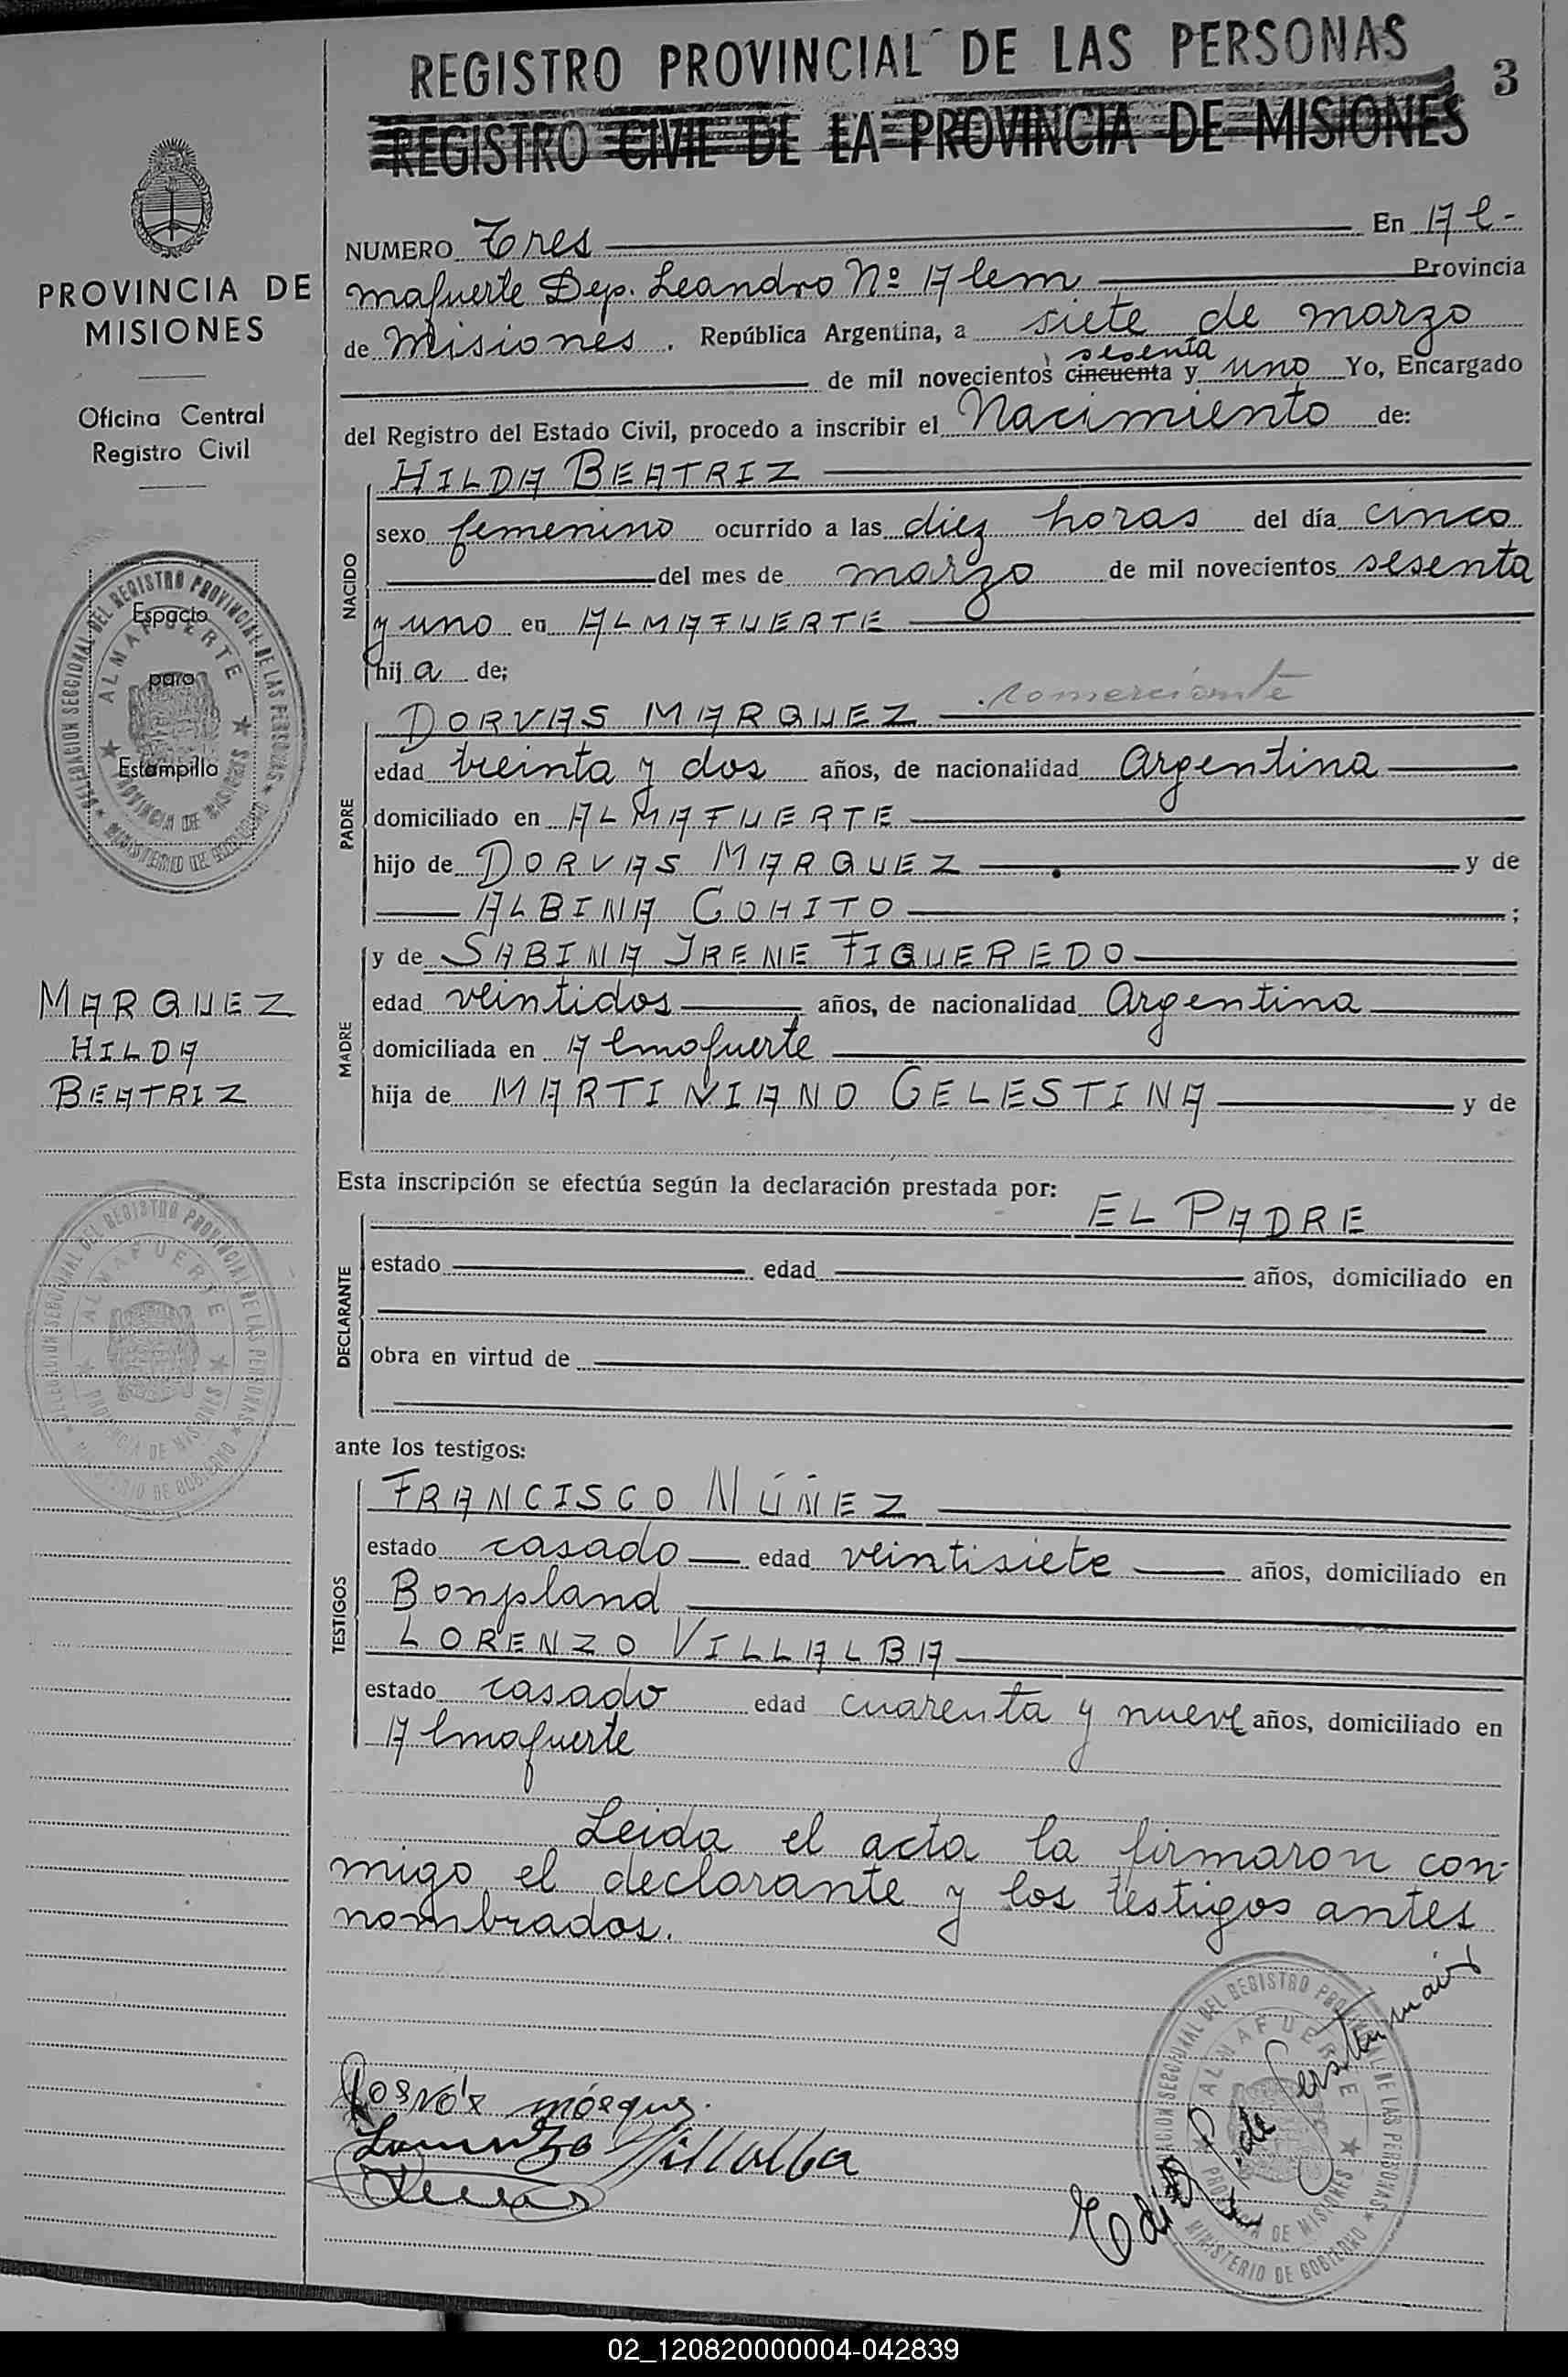 REGISTRO PROVINCIAL DE LAS PERSONAS
3
REGISTRO CIVIL DE LA PROVINCIA DE MISIONES
PROVINCIA DE
MISIONES
Oficina Central
Registro Civil
NUMERO Tres En Al-
mafuerte Dep. Leandro Nº Alem Provincia
de Misiones. República Argentina, a siete de marzo
sesenta
de mil novecientos cincuenta y uno Yo, Encargado
del Registro del Estado Civil, procedo a inscribir el Nacimiento de:
NACIDO
HILDA BEATRIZ
sexo femenino ocurrido a las diez horas del día cinco
del mes de marzo de mil novecientos sesenta
y uno en ALMAFUERTE
hija de;
comerciante
PADRE
DORVAS MARQUEZ
edad treinta y dos años, de nacionalidad Argentina
domiciliado en ALMAFUERTE
hijo de DORVAS MARQUEZ y de
ALBINA COHITO ;
MADRE
y de SABINA IRENE FIGUEREDO
edad veintidos años, de nacionalidad Argentina
domiciliada en Almafuerte
hija de MARTINIANO CELESTINA y de
Espacio
para
Estampilla
DELEGACION SECCIONAL DEL REGISTRO PROVINCIAL DE LAS PERSONAS
ALMAFUERTE
PROVINCIA DE MISIONES
MINISTERIO DE GOBIERNO
MARQUEZ
HILDA
BEATRIZ
Esta inscripción se efectúa según la declaración prestada por:
DECLARANTE
EL PADRE
estado edad años, domiciliado en
obra en virtud de
DELEGACION SECCIONAL DEL REGISTRO PROVINCIAL DE LAS PERSONAS
ALMAFUERTE
PROVINCIA DE MISIONES
MINISTERIO DE GOBIERNO
ante los testigos:
TESTIGOS
FRANCISCO NÚÑEZ
estado casado edad veintisiete años, domiciliado en
Bonpland
LORENZO VILLALBA
estado casado edad cuarenta y nueve años, domiciliado en
Almafuerte
Leida el acta la firmaron con-
migo el declarante y los testigos antes
nombrados.
Lorenzo Villalba
DELEGACION SECCIONAL DEL REGISTRO PROVINCIAL DE LAS PERSONAS
ALMAFUERTE
PROVINCIA DE MISIONES
MINISTERIO DE GOBIERNO
02_120820000004-042839